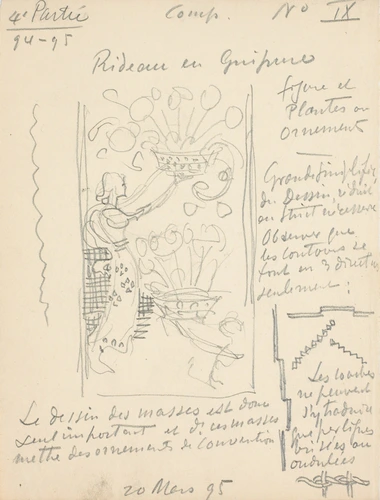 4e Partie
94-95
Comp.
No IX
Rideau en Guipure
figure et
Plantes ou
ornements
Grande simplicité
du Dessin, réduit
au strict nécessaire
Observer que
les contours se
font en 3 direct
seulement :
Les courbes
ne peuvent
s'y traduire
que par lignes
brisées ou
ondulées
Le dessin des masses est donc
seul important et ds ces masses
mettre des ornements de Convention
20 Mars 95